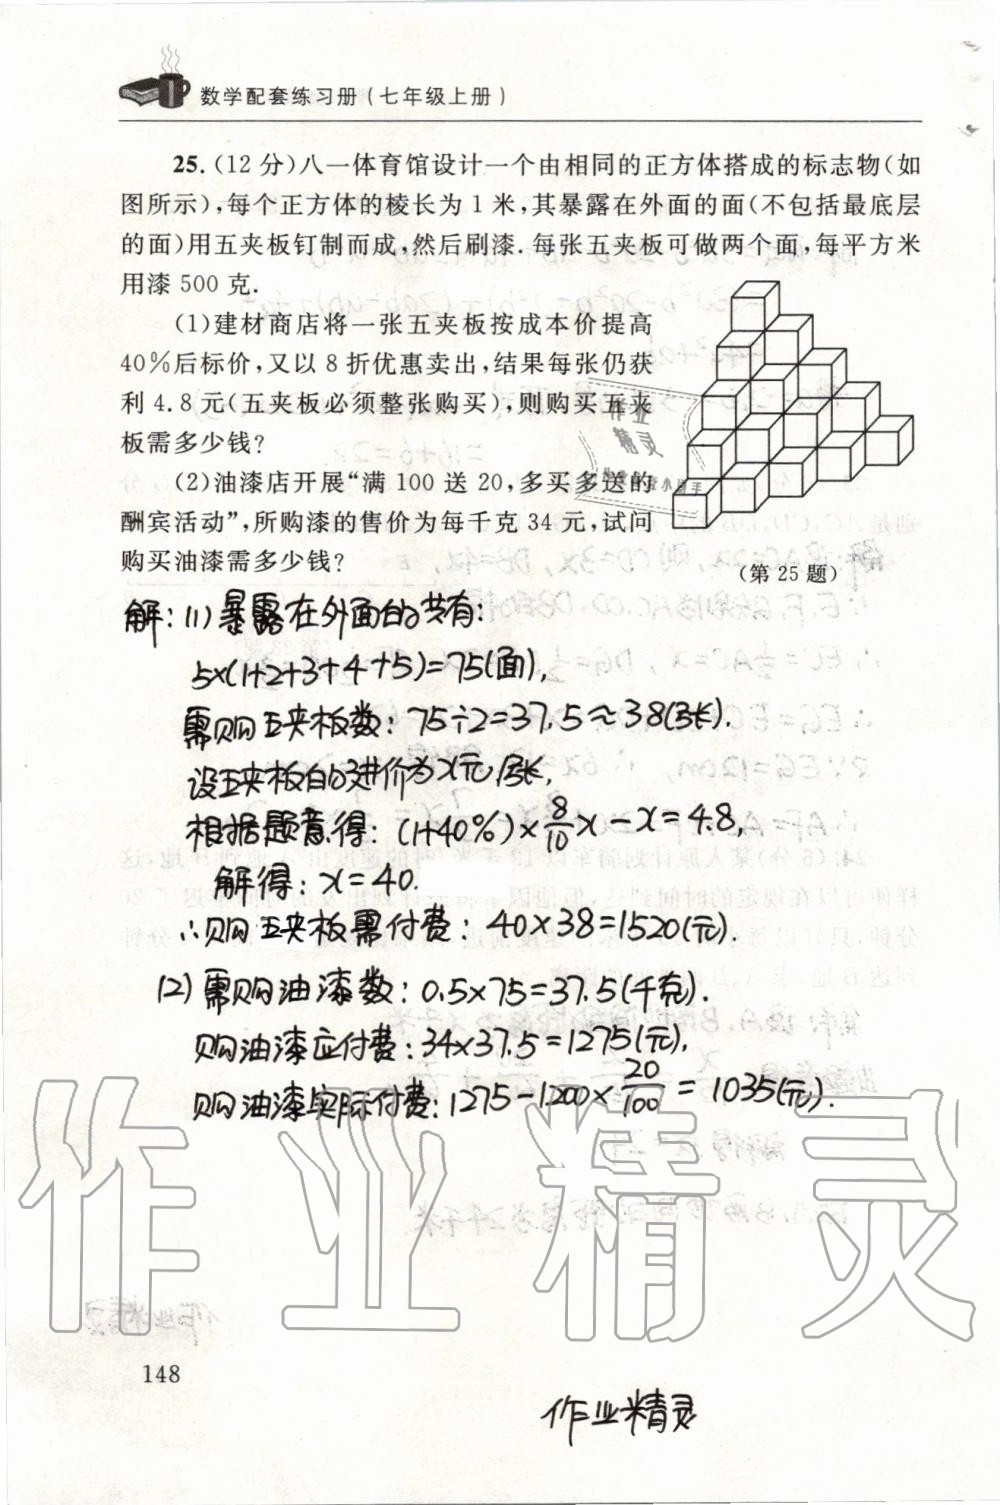 数学配套练习册(七年级上册)
25.(12分)八一体育馆设计一个由相同的正方体搭成的标志物(如
图所示),每个正方体的棱长为1米,其暴露在外面的面(不包括最底层
的面)用五夹板钉制而成,然后刷漆.每张五夹板可做两个面,每平方米
用漆500克.
(1)建材商店将一张五夹板按成本价提高
40%后标价,又以8折优惠卖出,结果每张仍获
利4.8元(五夹板必须整张购买),则购买五夹
板需多少钱?
(2)油漆店开展“满100送20,多买多送的
酬宾活动”,所购漆的售价为每千克34元,试问
购买油漆需多少钱?
(第25题)
解:(1)暴露在外面的共有:
5×(1+2+3+4+5)=75(面),
需购五夹板数:75÷2=37.5≈38(张).
设五夹板的进价为x元/张,
根据题意得:(1+40%)×8/10x-x=4.8,
解得:x=40.
∴购五夹板需付费:40×38=1520(元).
(2)需购油漆数:0.5×75=37.5(千克).
购油漆应付费:34×37.5=1275(元),
购油漆实际付费:1275-1200×20/100=1035(元).
作业精灵
148
作业精灵